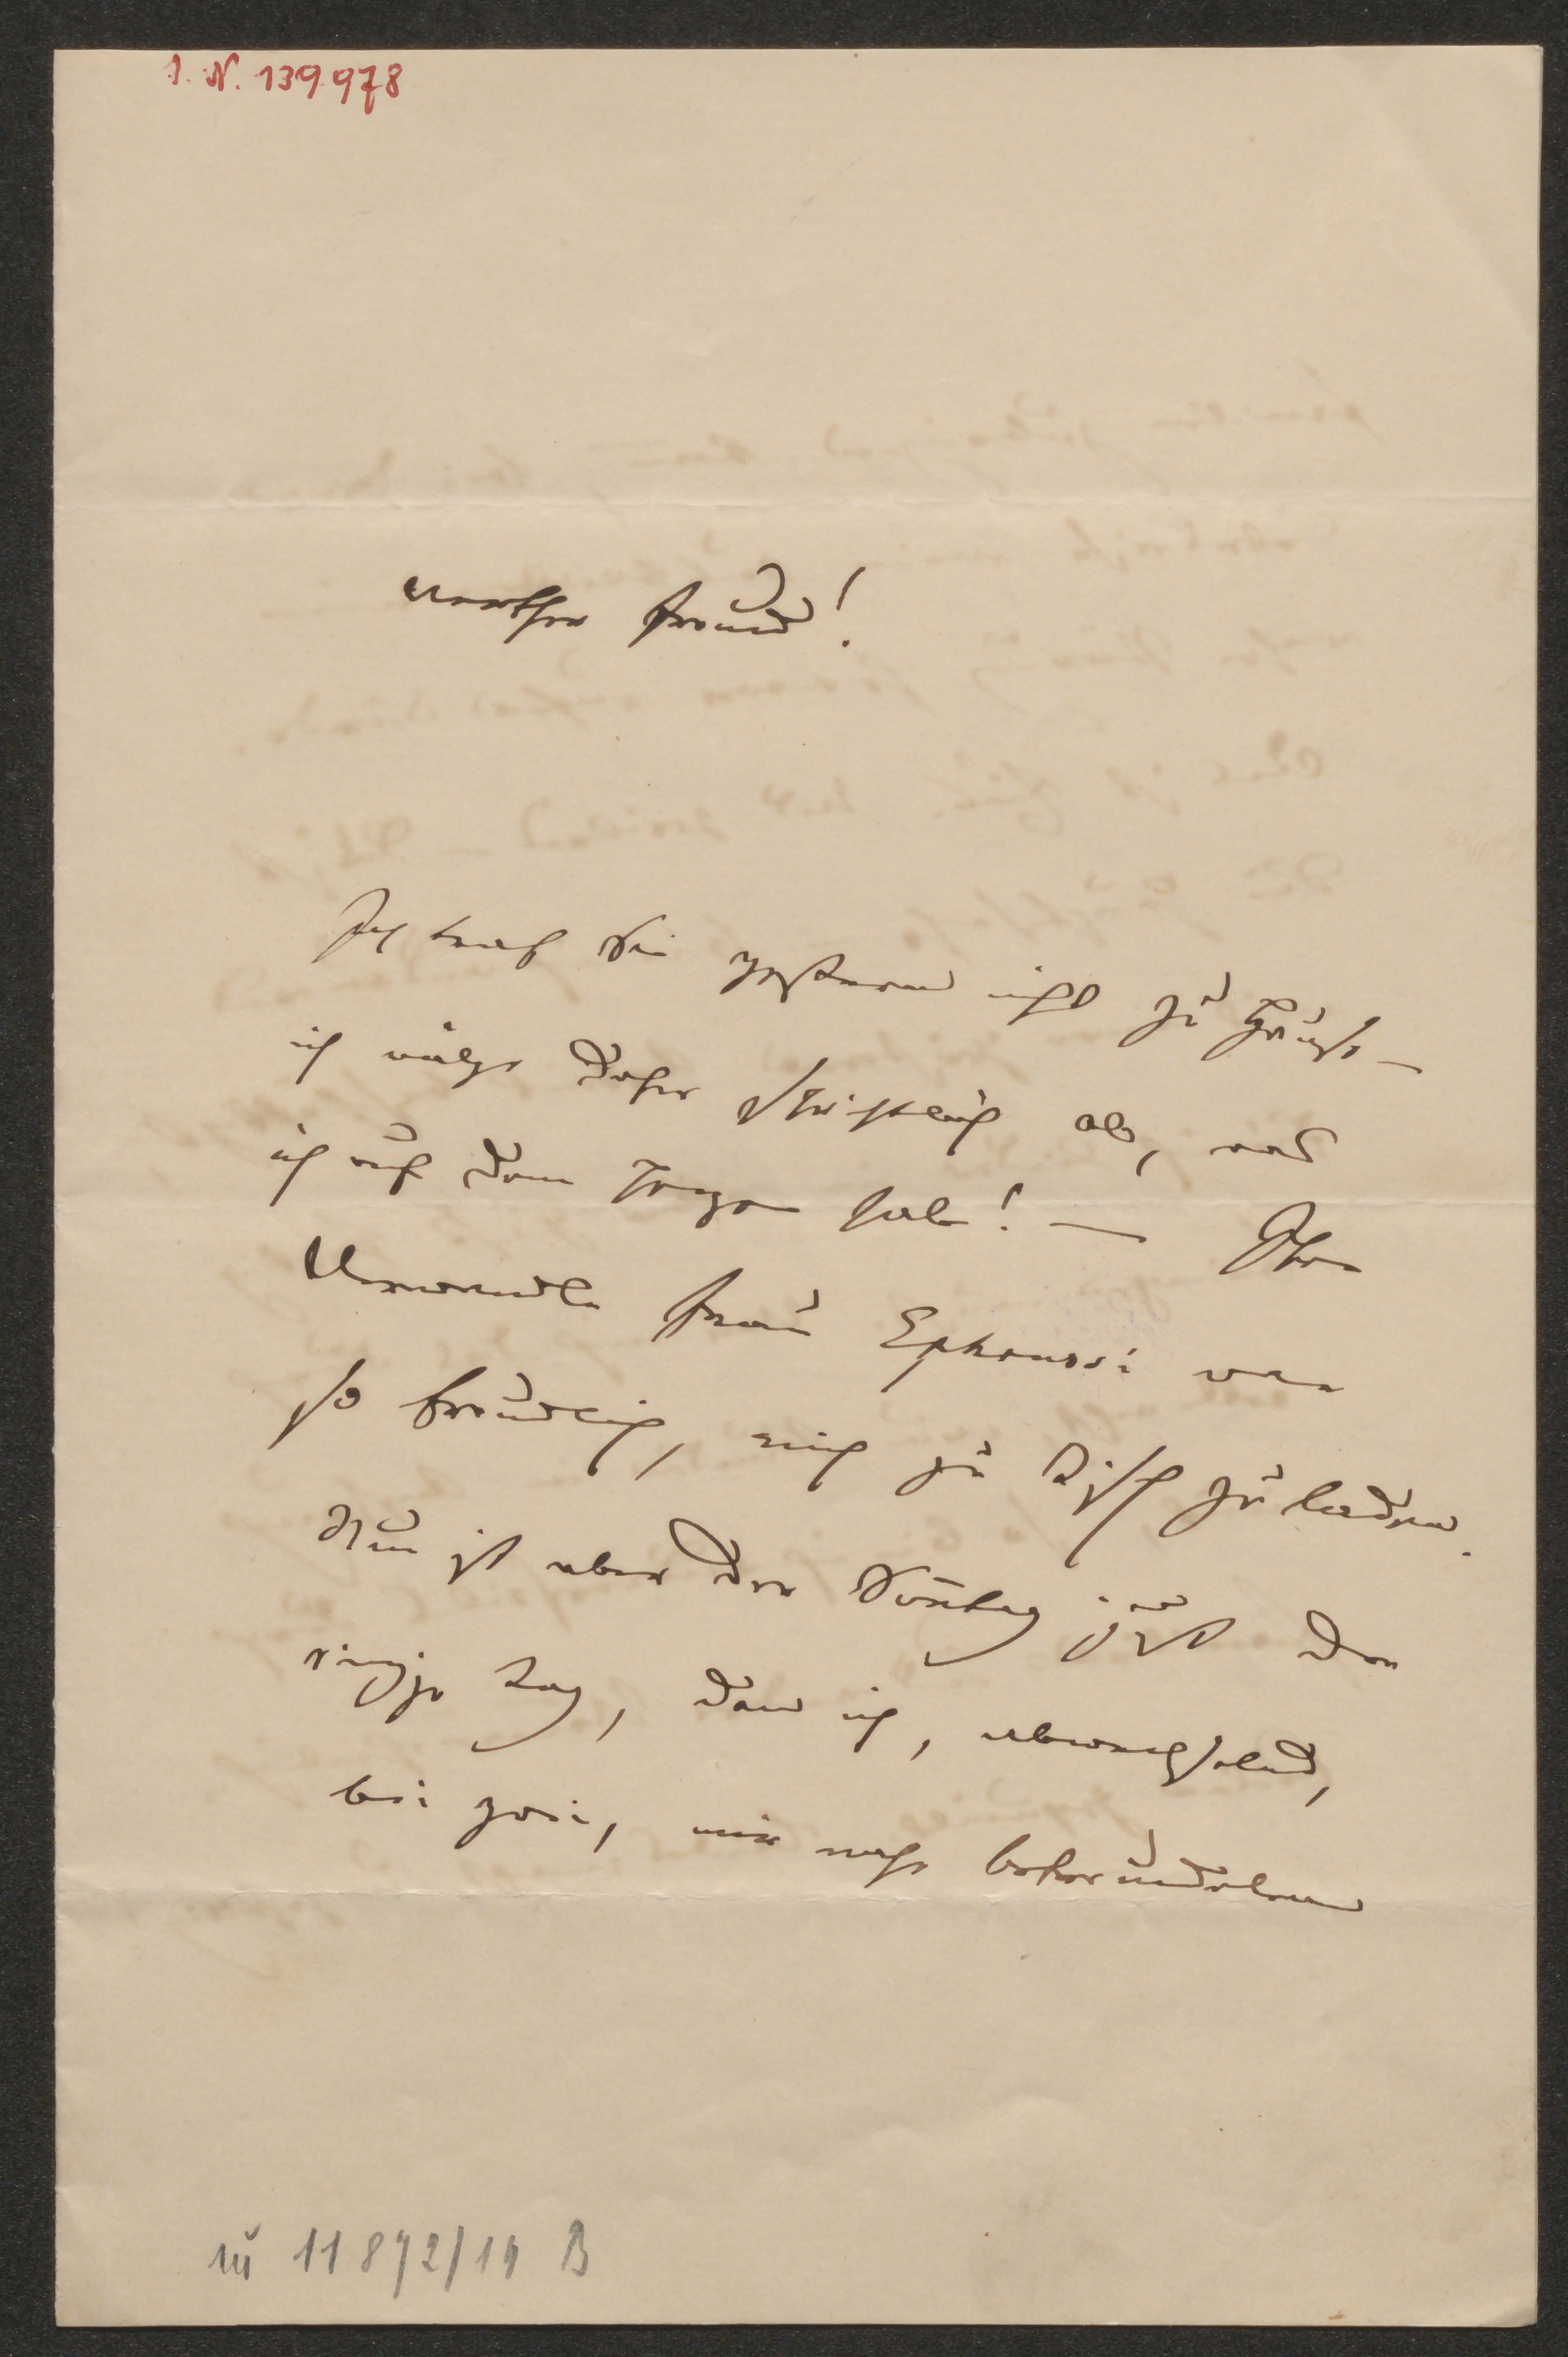 I. N. 139.978
Werther Freund!
Ich traf Sie gestern nicht zu Hause –
ich wälze daher schriftlich ab, was
ich auf dem Herzen habe! – Ihre
Verwandte Frau Ephrussi war
so freundlich, mich zu Tisch zu laden.
Nun ist aber der Sonntag just der
einzige Tag, den ich, abwechselnd,
bei zwei, mir nahe befreundeten
11872/14 B